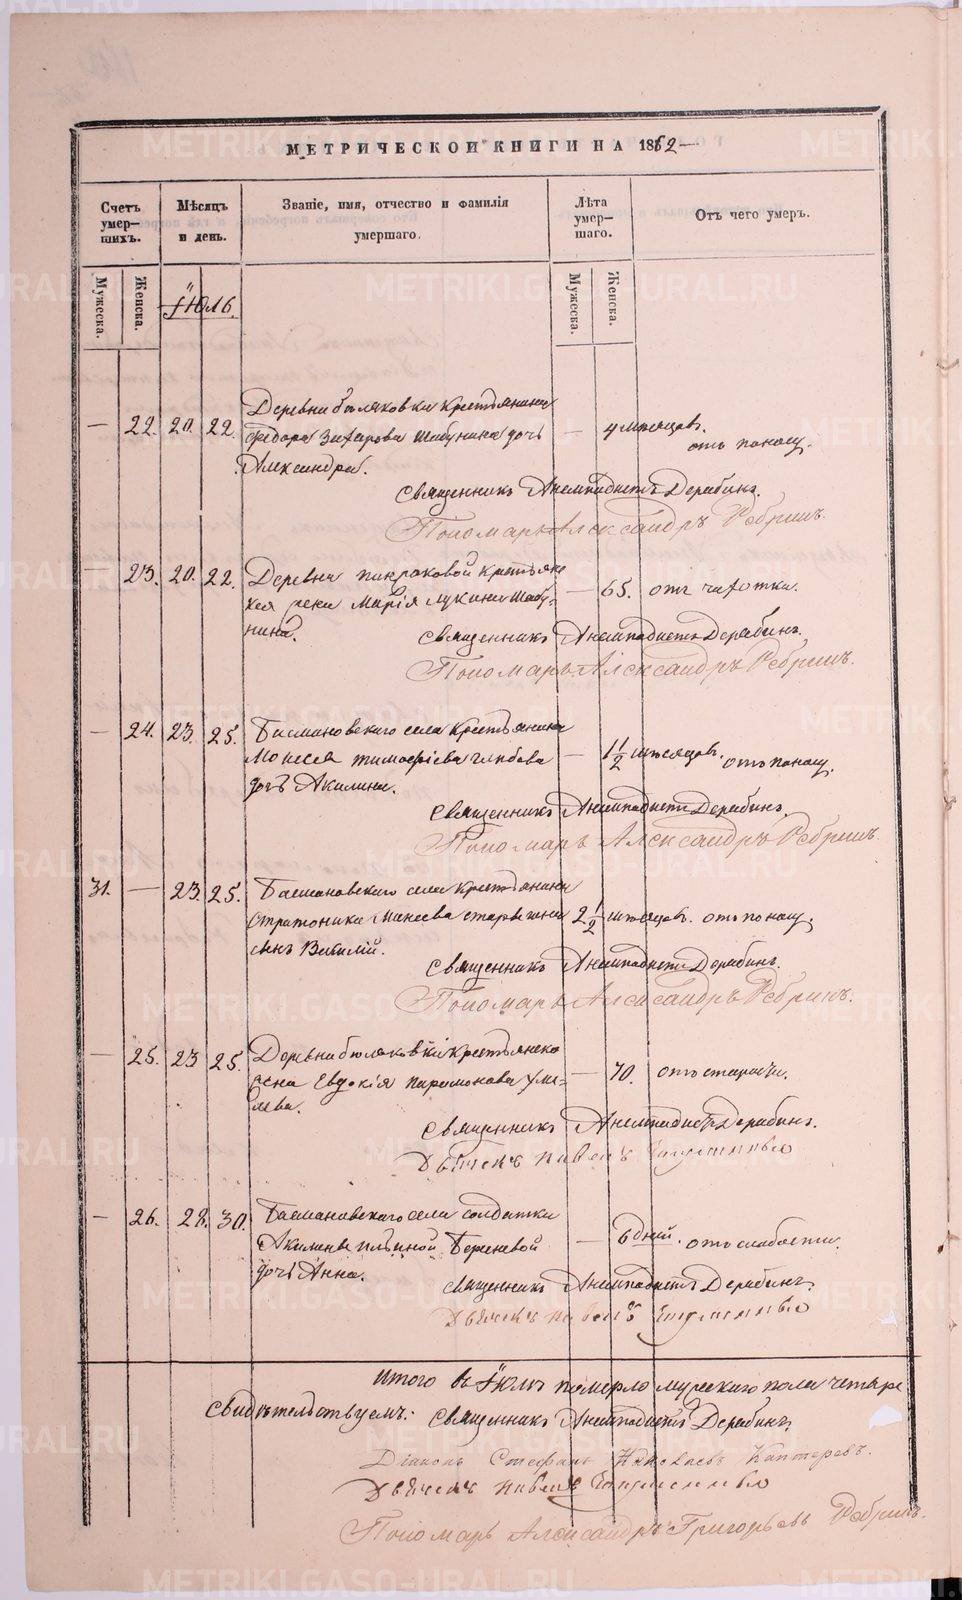 МЕТРИЧЕСКОЙ КНИГИ НА 1862
Счетъ умер-шихъ.
Мѣсяцъ и день.
Званіе, имя, отчество и фамилія умершаго.
Лѣта умер-шаго.
Отъ чего умеръ.
Мужеска.
Женска.
Іюль.
Мужеска.
Женска.
— 22. 20. 22. Деревни Беляковки крестьянина
Федора Захарова Шабунина дочь — 4 мѣсяцовъ. отъ поносу.
Александра.
Священникъ Анемподистъ Дерябинъ.
Пономарь Александръ Ребринъ.
— 23. 20. 22. Деревни крестьянс
кая жена Марія Лукина Шабу- — 65. отъ чахотки.
нина.
Священникъ Анемподистъ Дерябинъ.
Пономарь Александръ Ребринъ.
— 24. 23. 25. Басмановскаго села крестьянина
Моисея Тимофѣева Глебова — 1 1/2 мѣсяцовъ. отъ поносу.
дочь Акилина.
Священникъ Анемподистъ Дерябинъ.
Пономарь Александръ Ребринъ.
31. — 23. 25. Басмановскаго села крестьянина
Стратоника Макеева 2 1/2 мѣсяцовъ. отъ поносу.
сынъ
Священникъ Анемподистъ Дерябинъ.
Пономарь Александръ Ребринъ.
— 25. 23 25. Деревни Беляковки крестьянска
жена Евдокія Парамонова — 70. отъ старости.
Священникъ Анемподистъ Дерябинъ.
Дьячекъ Павелъ
— 26. 28. 30. Басмановскаго села солдатки
Акилины Ильиной Береневой — 6 дней. отъ слабости.
дочь Анна.
Священникъ Анемподистъ Дерябинъ.
Дьячекъ Павелъ
Итого въ Іюлѣ померло мужскаго пола четыре
Свидѣтельствуемъ: Священникъ Анемподистъ Дерябинъ.
Діаконъ Стефанъ Каптеревъ.
Дьячекъ Павелъ
Пономарь Александръ Григорьевъ Ребринъ.
METRIKI.GASO-URAL.RU